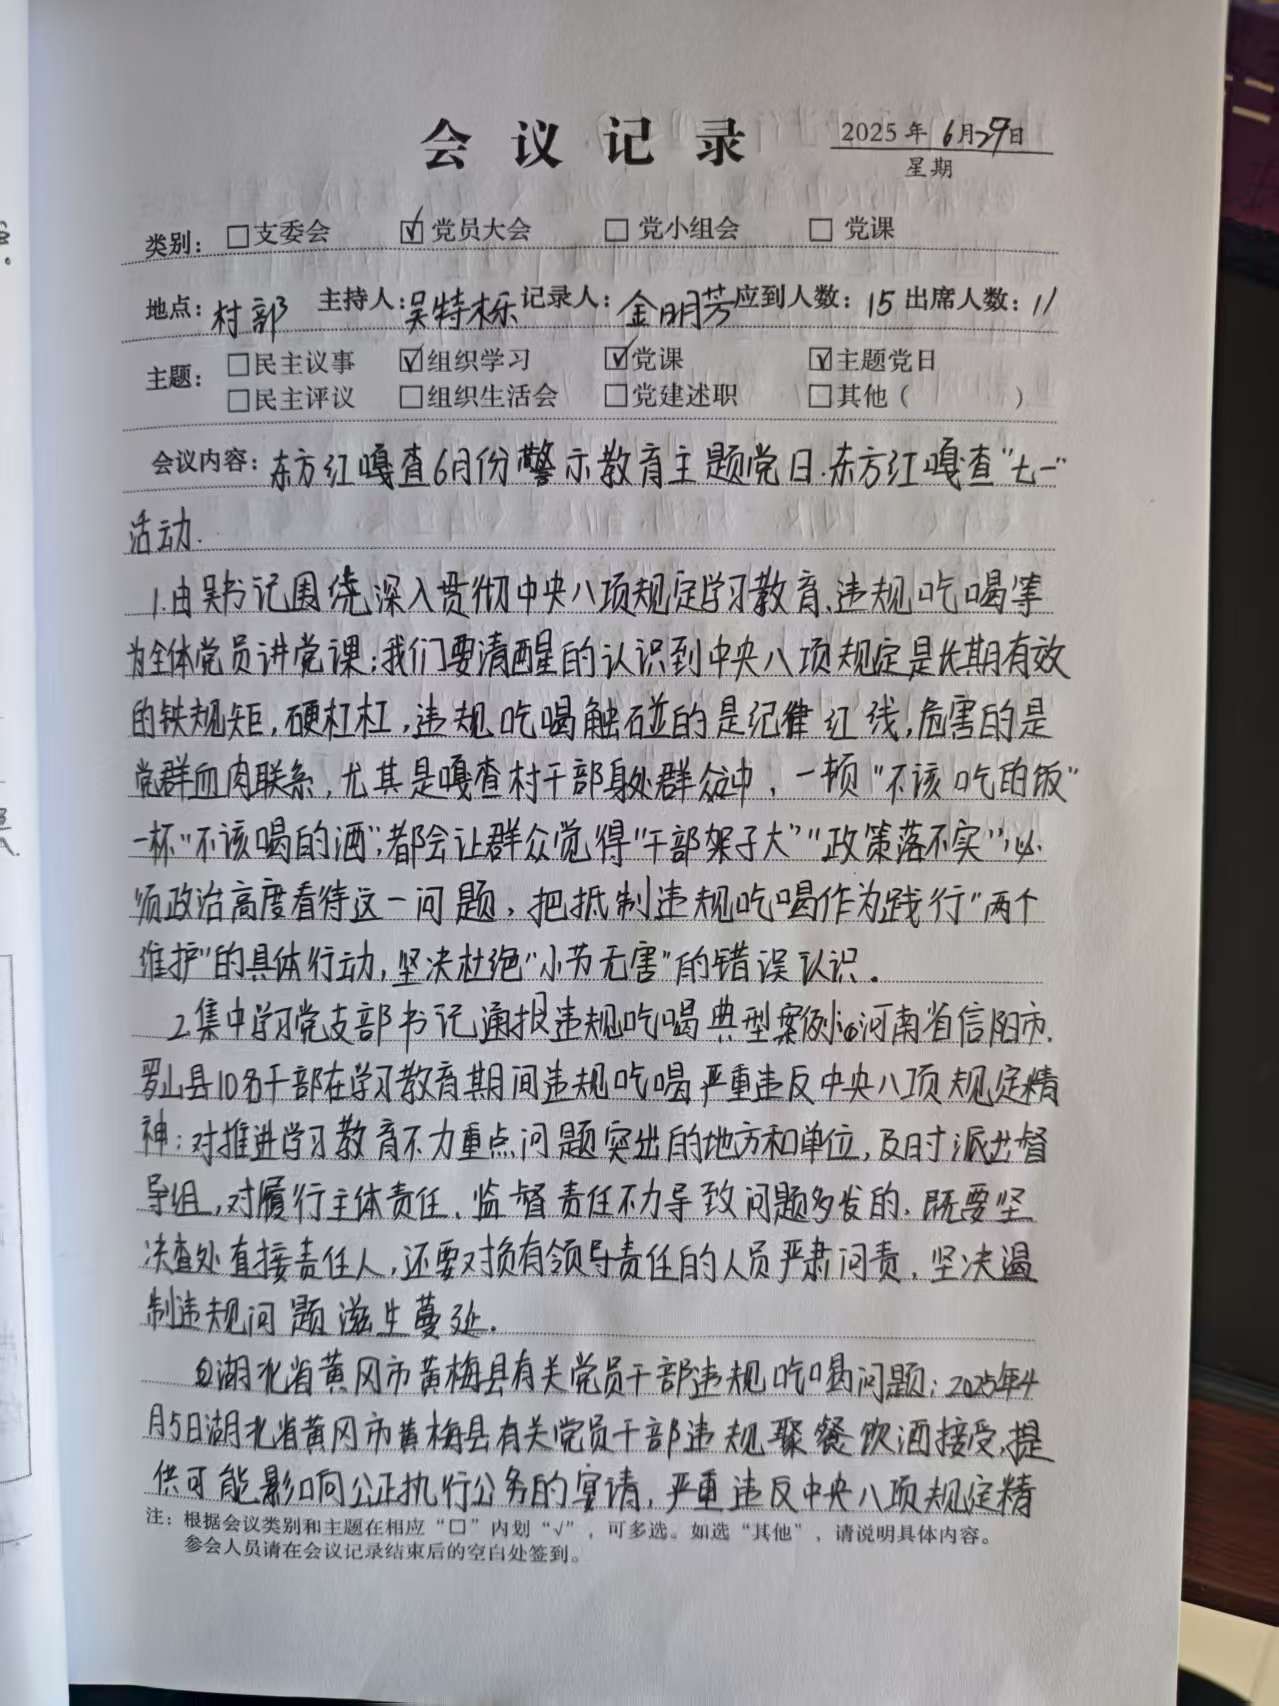 会议记录
2025年6月29日
星期
类别：□支委会 ☑党员大会 □党小组会 □党课
地点：村部 主持人：吴特栎 记录人：金明芳 应到人数：15 出席人数：11
主题：□民主议事 ☑组织学习 ☑党课 ☑主题党日
□民主评议 □组织生活会 □党建述职 □其他（ ）
会议内容：东方红嘎查6月份警示教育主题党日.东方红嘎查"七一"
活动.
1.由吴书记围绕深入贯彻中央八项规定学习教育、违规吃喝等
为全体党员讲党课：我们要清醒的认识到中央八项规定是长期有效
的铁规矩，硬杠杠，违规吃喝触碰的是纪律红线，危害的是
党群血肉联系，尤其是嘎查村干部身处群众中，一顿"不该吃的饭"
一杯"不该喝的酒"，都会让群众觉得"干部架子大""政策落不实"，必
须政治高度看待这一问题，把抵制违规吃喝作为践行"两个
维护"的具体行动，坚决杜绝"小节无害"的错误认识。
2.集中学习党支部书记通报违规吃喝典型案例：①河南省信阳市.
罗山县10名干部在学习教育期间违规吃喝严重违反中央八项规定精
神：对推进学习教育不力重点问题突出的地方和单位，及时派出督
导组，对履行主体责任、监督责任不力导致问题多发的.既要坚
决查处直接责任人，还要对负有领导责任的人员严肃问责，坚决遏
制违规问题滋生蔓延.
②湖北省黄冈市黄梅县有关党员干部违规吃喝问题：2025年4
月5日湖北省黄冈市黄梅县有关党员干部违规聚餐饮酒接受、提
供可能影响公正执行公务的宴请，严重违反中央八项规定精
注：根据会议类别和主题在相应"□"内划"√"，可多选。如选"其他"，请说明具体内容。
参会人员请在会议记录结束后的空白处签到。